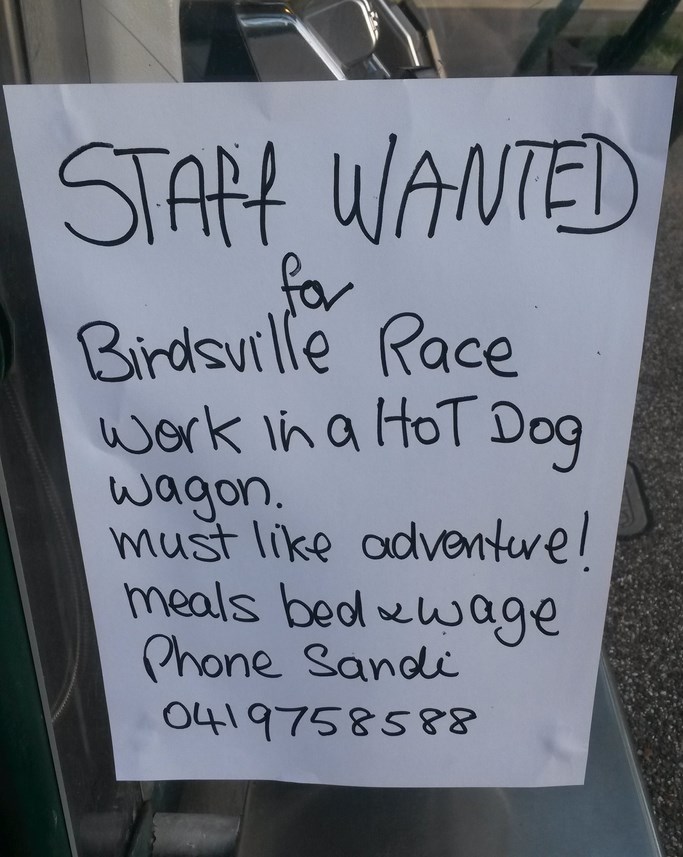 STAff WANTED
for
Birdsville Race
work in a HoT Dog
wagon.
must like adventure!
meals bed & wage
Phone Sandi
0419758588